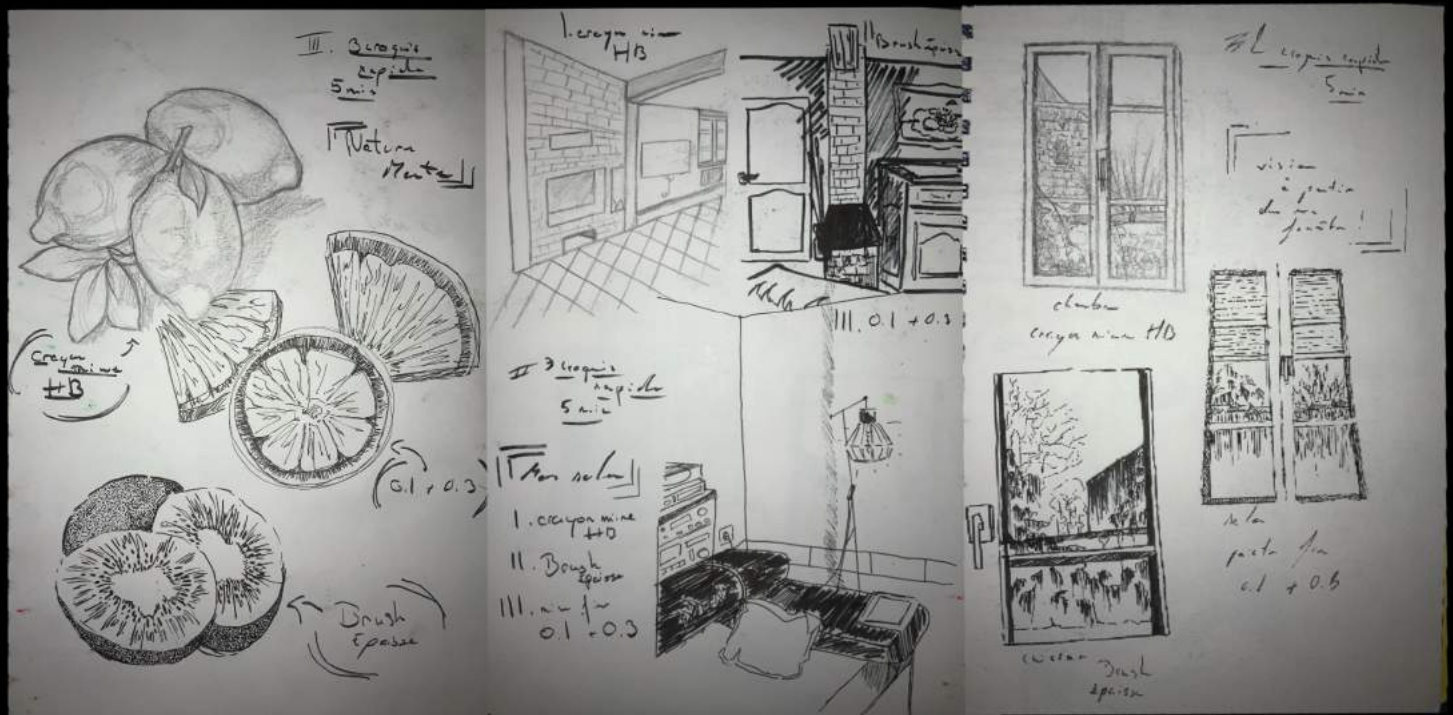 III. 3 croquis
rapide
5 min
Natura
Morta
Crayon
mine
HB
0.1 + 0.3
Brush
Épaisse
I. crayon mine
HB
II Brush épaisse
III. 0.1 + 0.3
II 3 croquis
rapide
5 min
Mon salon
I. crayon mine
HB
II. Brush
épaisse
III. 
0.1 + 0.3
croquis rapide
5 min
vision
à partir
de ma
fenêtre !
chambre
crayon mine HB
pointe fine
0.1 + 0.3
cuisine
Brush
épaisse